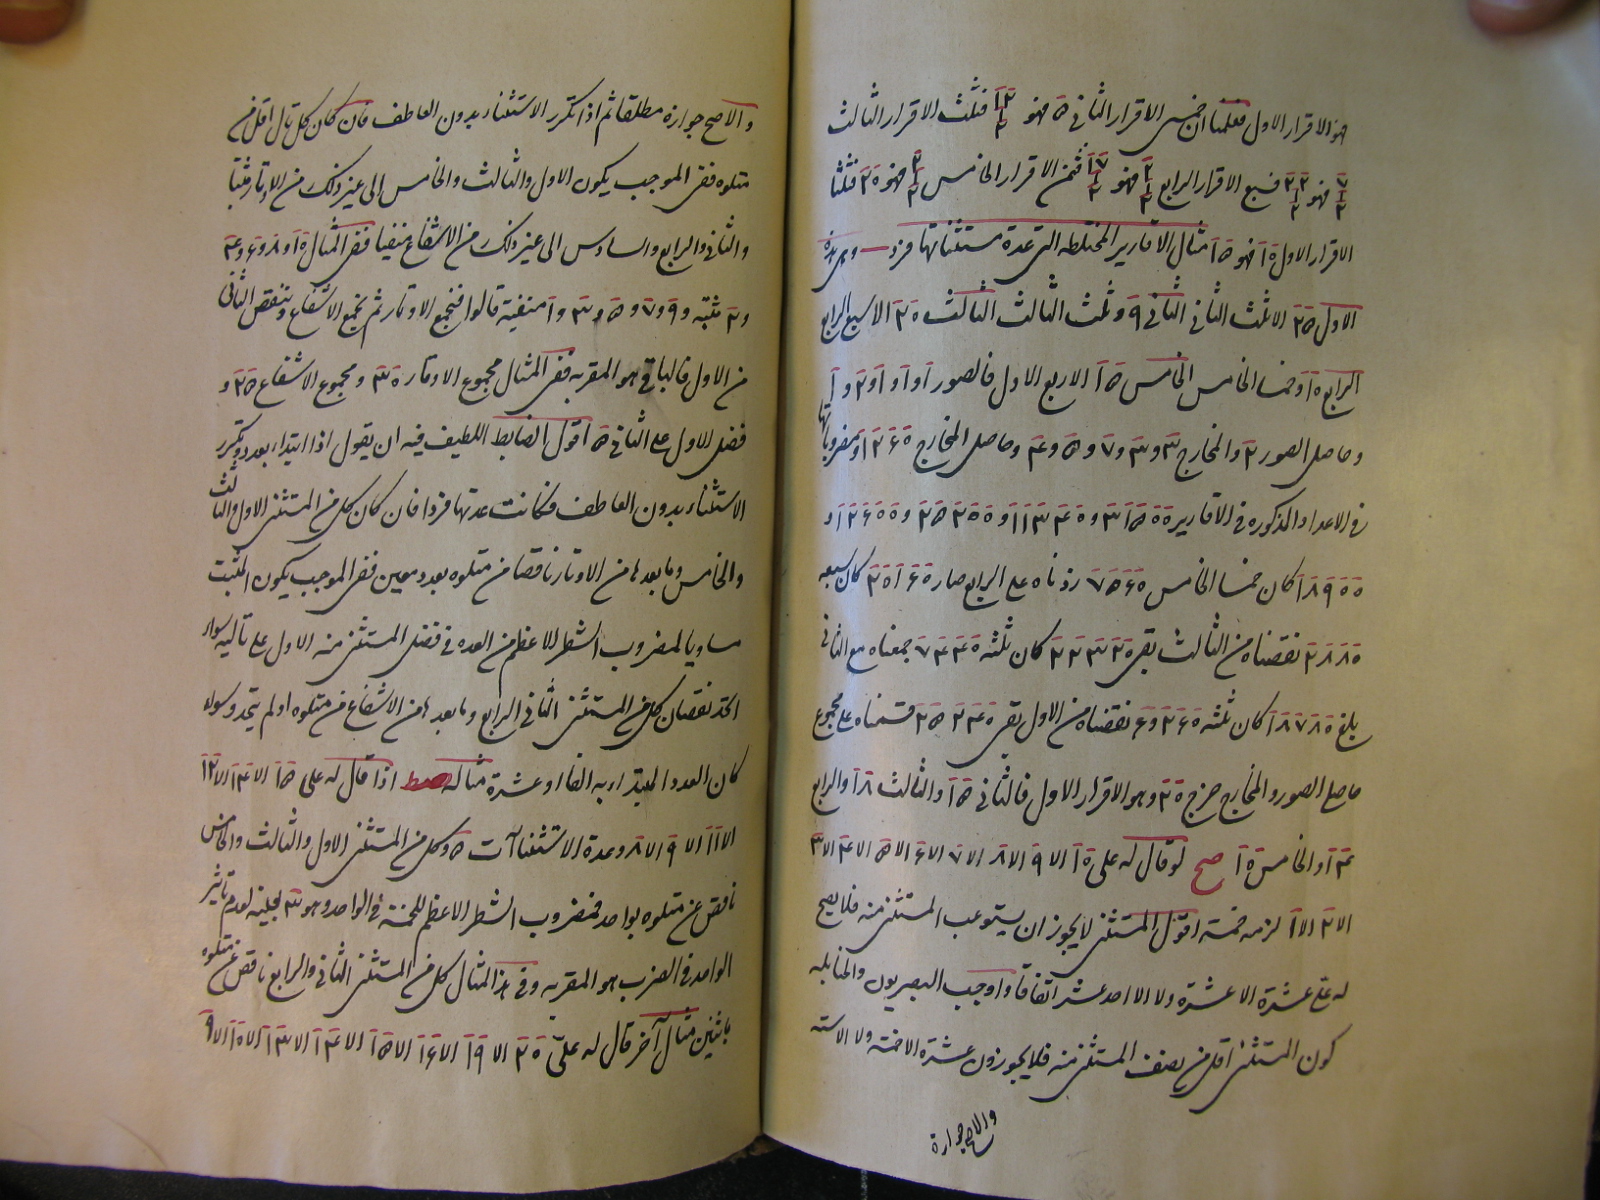 هو الاقرار الاول فعلمنا ان خمس الاقرار الثانى ٥ فهو فثلث الاقرار الثالث
فهو فسبع الاقرار الرابع فهو فثمن الاقرار الخامس فهو ٢٥ فثلثا
الاقرار الاول ١٥ فهو ١٥ مثال الاقارير المختلطه التى عدة مستثنياتها فرد وهى هذه
الاول ٢٥ الا ثلث الثانى الثانى ٩ وثلث الثالث الثالث ٢٥ الا سبع الرابع
الرابع وخمسا الخامس الخامس ١٥ الا ربع الاول فالصور ١ و ١ و ١ و ٢ و ١
وحاصل الصور ٢ والمخارج ٣ و ٣ و ٧ و ٥ و ٤ وحاصل المخارج ١٢٦٠ ومضروباتها
فى الاعداد المذكوره فى الاقارير
كان خمسا الخامس ٧٥٦٠ زدناه على الرابع صار كان سبعه
٢٨٨٠ نقصناه من الثالث بقى ٢٢٣٢٠ كان ثلثه ٧٤٤٠ جمعناه مع الثانى
بلغ ١٨٧٨٠ كان ثلثه ٦٢٦٠ نقصناه من الاول بقى ٢٥٢٤٠ قسمناه على مجموع
حاصل الصور والمخارج خرج ٢٠ وهو الاقرار الاول فالثانى ١٥ والثالث ١٨ والرابع
١٤ والخامس ١٠ صح لو قال له على ١٠ الا ٩ الا ٨ الا ٧ الا ٦ الا ٥ الا ٤ الا ٣
الا ٢ الا ١ لزمه خمسة اقول المستثنى لايجوز ان يستوعب المستثنى منه فلايصح
له على عشرة الا عشرة ولا الا احد عشر اتفاقا واوجب البصريون والحنابله
كون المستثنى اقل من نصف المستثنى منه فلايجوزون عشرة الا خمسة ولا الا ستة
والاصح جوازه
والاصح جوازه مطلقا ثم اذا تكرر الاستثناء بدون العاطف فان كان كل تال اقل من
متلوه ففى الموجب يكون الاول والثالث والخامس الى غير ذلك من الاوتار مثبتا
والثانى والرابع والسادس الى غير ذلك من الاشفاع منفيا ففى المثال ١٠ و ٨ و ٦ و ٤
و ٢ مثبتة و ٩ و ٧ و ٥ و ٣ و ١ منفية قالوا فنجمع الاوتار ثم نجمع الاشفاع وننقص الثانى
من الاول فالباقى هو المقر به ففى المثال مجموع الاوتار ٣٠ ومجموع الاشفاع ٢٥ و
فضل الاول على الثانى ٥ اقول الضابط اللطيف فيه ان يقول اذا ابتداء بعدد وتكرر
الاستثناء بدون العاطف فكانت عدتها فردا فان كان كل من المستثنى الاول والثالث
والخامس وما بعدها من الاوتار ناقصا من متلوه بعدد معين ففى الموجب يكون المثبت
مساويا لمضروب الشطر الاعظم من العده فى فضل المستثنى منه الاول على تاليه سواء
اتحد نقصان كل من المستثنى الثانى والرابع وما بعدها من الاشفاع من متلوه او لم يتحد وسواء
كان العدد المبتداء به الفا او عشرة مثاله اذا قال له على ١٥ الا ١٤ الا ١٢
الا ١١ الا ٩ الا ٨ وعدة الاستثناآت ٥ وكل من المستثنى الاول والثالث والخامس
ناقص عن متلوه بواحد فمضروب الشطر الاعظم للخمسة فى الواحد وهو ٣ بعينه لعدم تاثير
الواحد فى الضرب هو المقر به وفى هذا المثال كل من المستثنى الثانى والرابع ناقص عن متلوه
باثنين مثال آخر قال له علىّ ٢٠ الا ١٩ الا ١٦ الا ١٥ الا ١٤ الا ١٣ الا ١٠ الا ٩